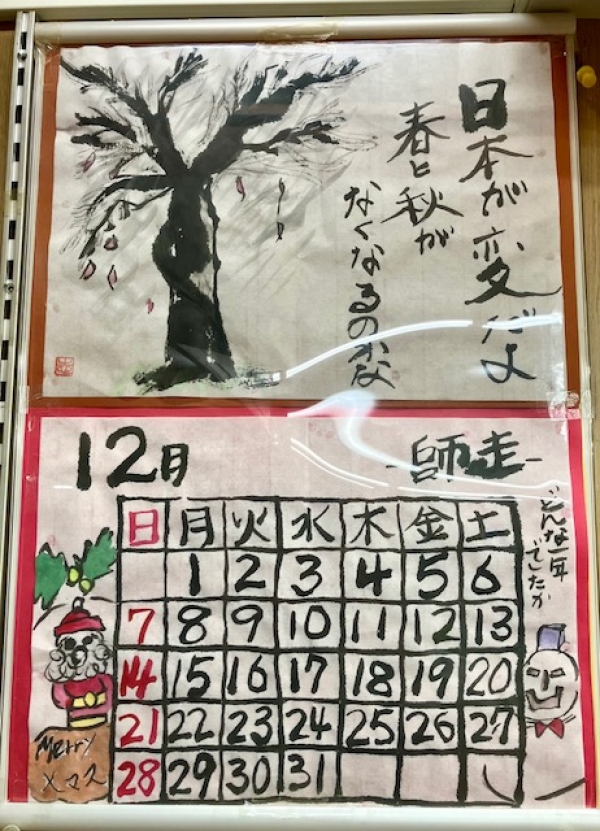 日本が変だよ
春と秋が
なくなるのかな
12月
-師走-
どんな一年
でしたか
日 月 火 水 木 金 土
1 2 3 4 5 6
7 8 9 10 11 12 13
14 15 16 17 18 19 20
21 22 23 24 25 26 27
28 29 30 31
Merry
Xマス